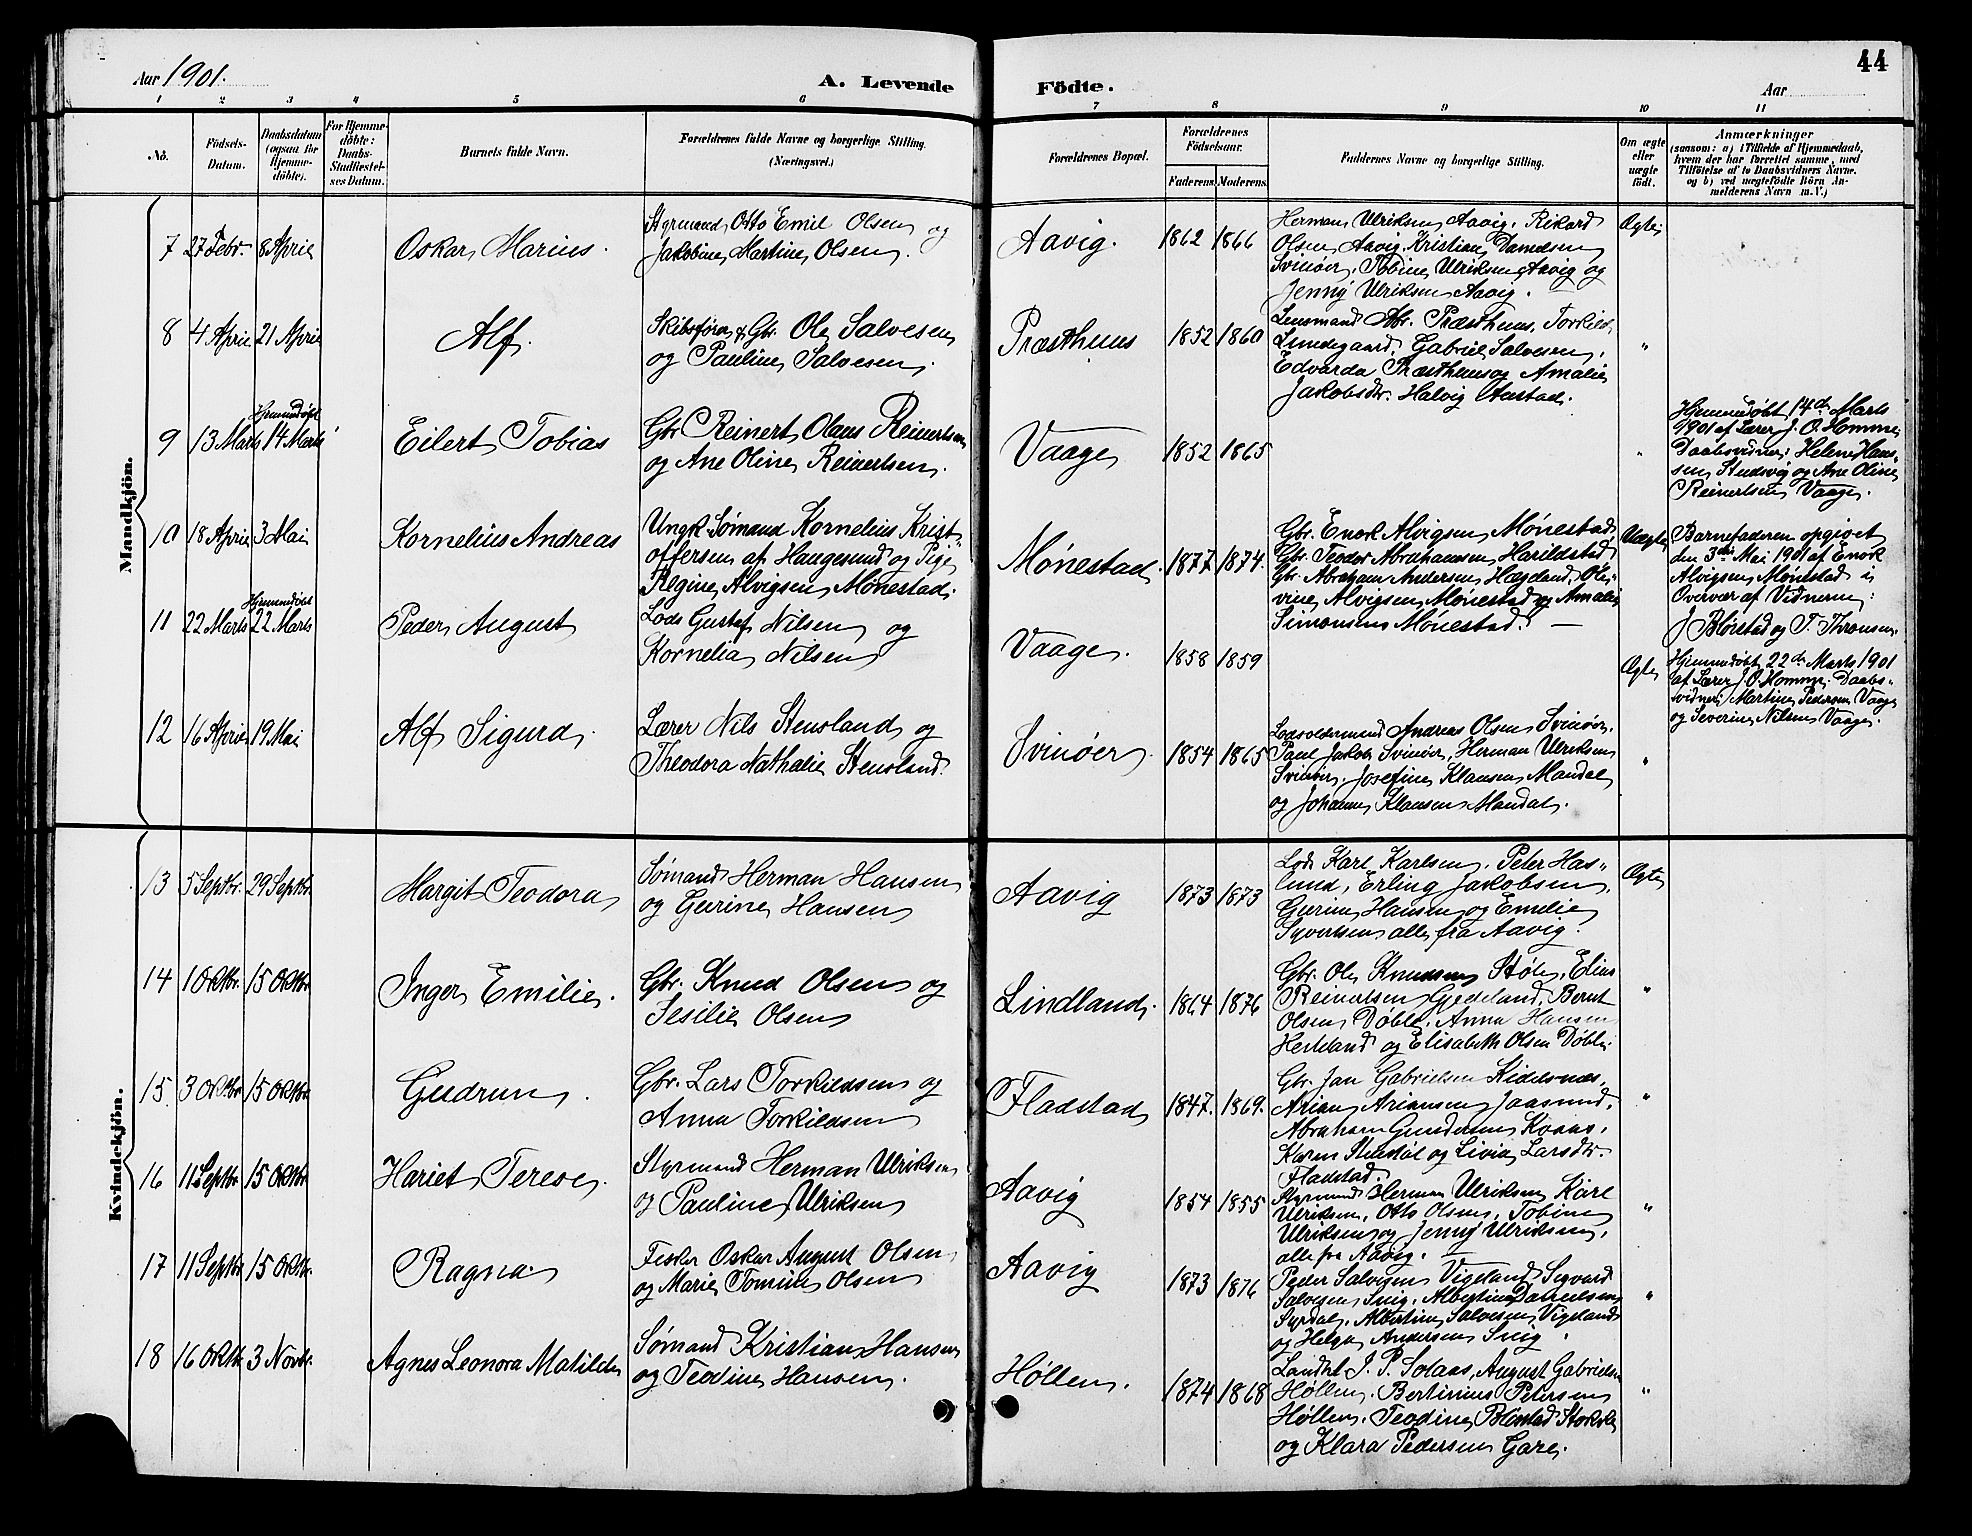 44
Aar 1901.
A. Levende
Födte.
Aar
1 2 3 4 5 6 7 8 9 10 11
No.
Födsels-
Datum.
Daabsdatum
(ogsaa för
Hjemme-
döbte).
For Hjemme-
döbte:
Daabs-
Stadfæstel-
ses Datum.
Barnets fulde Navn.
Forældrenes fulde Navne og borgerlige Stilling.
(Næringsvei.)
Forældrenes Bopæl.
Forældrenes
Födselsaar.
Faderens. Moderens.
Faddernes Navne og borgerlige Stilling.
Om ægte
eller
uægte
födt.
Anmærkninger
(saasom: a) i Tilfælde af Hjemmedaab,
hvem der har forrettet samme, med
Tilföielse af to Daabsvidners Navne.
og b) ved uægtefödte Börn An-
melderens Navn m.V.)
Mandkjön.
7 27 Febr. 8 April Oskar Marius.
Styrmand Otto Emil Olsen og
Jakobine Martine Olsen.
Aavig. 1862 1866
Herman Ulriksen Aavig. Rikard
Olsen Aavig, Kristian Danielsen
Svinøer. Tobine Ulriksen Aavig og
Jenny Ulriksen Aavig.
Ægte
8 4 April 21 April Alf.
Skibsfører & Gbr. Ole Salvesen
og Pauline Salvesen.
Præsthuus 1852 1860
Lensmand Abr. Præsthuus, Torkild
Lundegaard, Gabriel Salvesen,
Edvarda Præsthuus og Amalie
Jakobsdtr. Halvig Austad.
"
9 13 Marts Hjemmedøbt 14 Marts Eilert Tobias
Gbr Reinert Olaus Reinertsen
og Ane Oline Reinertsen.
Vaage 1852 1865
"
Hjemmedøbt 14de Marts
1901 af Lærer J. O. Homme,
Daabsvidner: Helene Han-
sen, Studevig og Ane Oline
Reinertsen Vaage.
10 18 April 3 Mai Kornelius Andreas
Ungk. Sømand Kornelius Krist-
offersen af Haugesund og Pige
Regine Alvigsen Mønestad.
Mønestad. 1877 1874.
Gbr. Enok Alvigsen Mønestad,
Gbr. Teodor Abrahamsen Harildstad
Gbr. Abraham Andersen Hægeland, Ole-
vine Alvigsen Mønestad og Amalie
Simonsen Mønestad. —
Uægte
Barnefaderen opgivet
den 3die Mai 1901 af Enok
Alvigsen Mønestad i
Overvær af Vidnerne:
J Blørstad og T. Thronsen.
11 22 Marts Hjemmedøbt 22 Marts Peder August
Lods Gustaf Nilsen og
Kornelia Nilsen
Vaage. 1858 1859
Ægte
Hjemmedøbt 22de Marts 1901
af Lærer J. O. Homme. Daabs-
vidner: Martine Pedersen Vaage
og Severine Nilsen Vaage.
12 16 April 19 Mai Alf Sigurd.
Lærer Nils Stensland og
Theodora Nathalie Stensland.
Svinøer 1854 1865
Lodsoldermand Andreas Olsen Svinøer,
Paul Jakobs Svinøer, Herman Ulriksen
Svinøer, Josefine Klausen Mandal
og Johanne Klausen Mandal.
"
Kvindekjön.
13 5 Septbr. 29 Septbr. Margit Teodora
Sømand Herman Hansen
og Gurine Hansen
Aavig 1873 1873
Lods Karl Karlsen, Peter Has-
lund, Erling Jakobsen,
Gurine Hansen og Emilie
Syvertsen alle fra Aavig.
Ægte
14 1 Oktbr. 15 Oktbr. Inger Emilie.
Gbr. Knud Olsen og
Sesilie Olsen
Lindland. 1864 1876
Gbr. Ole Knudsen Støle, Elias
Reinertsen Gjedeland, Bernt
Olsen Døble, Anna Hansen
og Elisabeth Olsen Døble.
"
15. 3 Oktbr 15 Oktbr Gudrun.
Gbr. Lars Torkildsen og
Anna Torkildsen
Fladstad 1847. 1869.
Gbr. Jan Gabrielsen Kidelsnæs,
Arian Ariansen Jaasund,
Abraham Gundersen Kvaas,
Karen og Livia Larsdtr.
Fladstad.
"
16 11 Septbr 15 Oktbr Hariet Terese.
Styrmand Herman Ulriksen
og Pauline Ulriksen
Aavig 1854 1855
Styrmand Herman Ulriksen, Karl
Ulriksen, Otto Olsen, Tobine
Ulriksen og Jenny Ulriksen,
alle fra Aavig. —
"
17 11 Septbr 15 Oktbr. Ragna.
Fisker Oskar August Olsen
og Marie Tomine Olsen
Aavig 1873 1876
Peder Salvesen Vigeland, Sigvard
Salvesen Svig, Albertine Danielsen
Syrdal, Albertine Salvesen Vigeland
og Helga Andersen Svig.
"
18 16 Oktbr. 3 Novbr. Agnes Leonora Matilde
Sømand Kristian Hansen
og Teodine Hansen.
Høllen. 1874 1868
Landhl. J. P. Solaas, August Gabrielsen
Høllen, Bertinius Petersen
Høllen, Teodine Blørstad Stokke
og Klara Pedersen Gare.
"